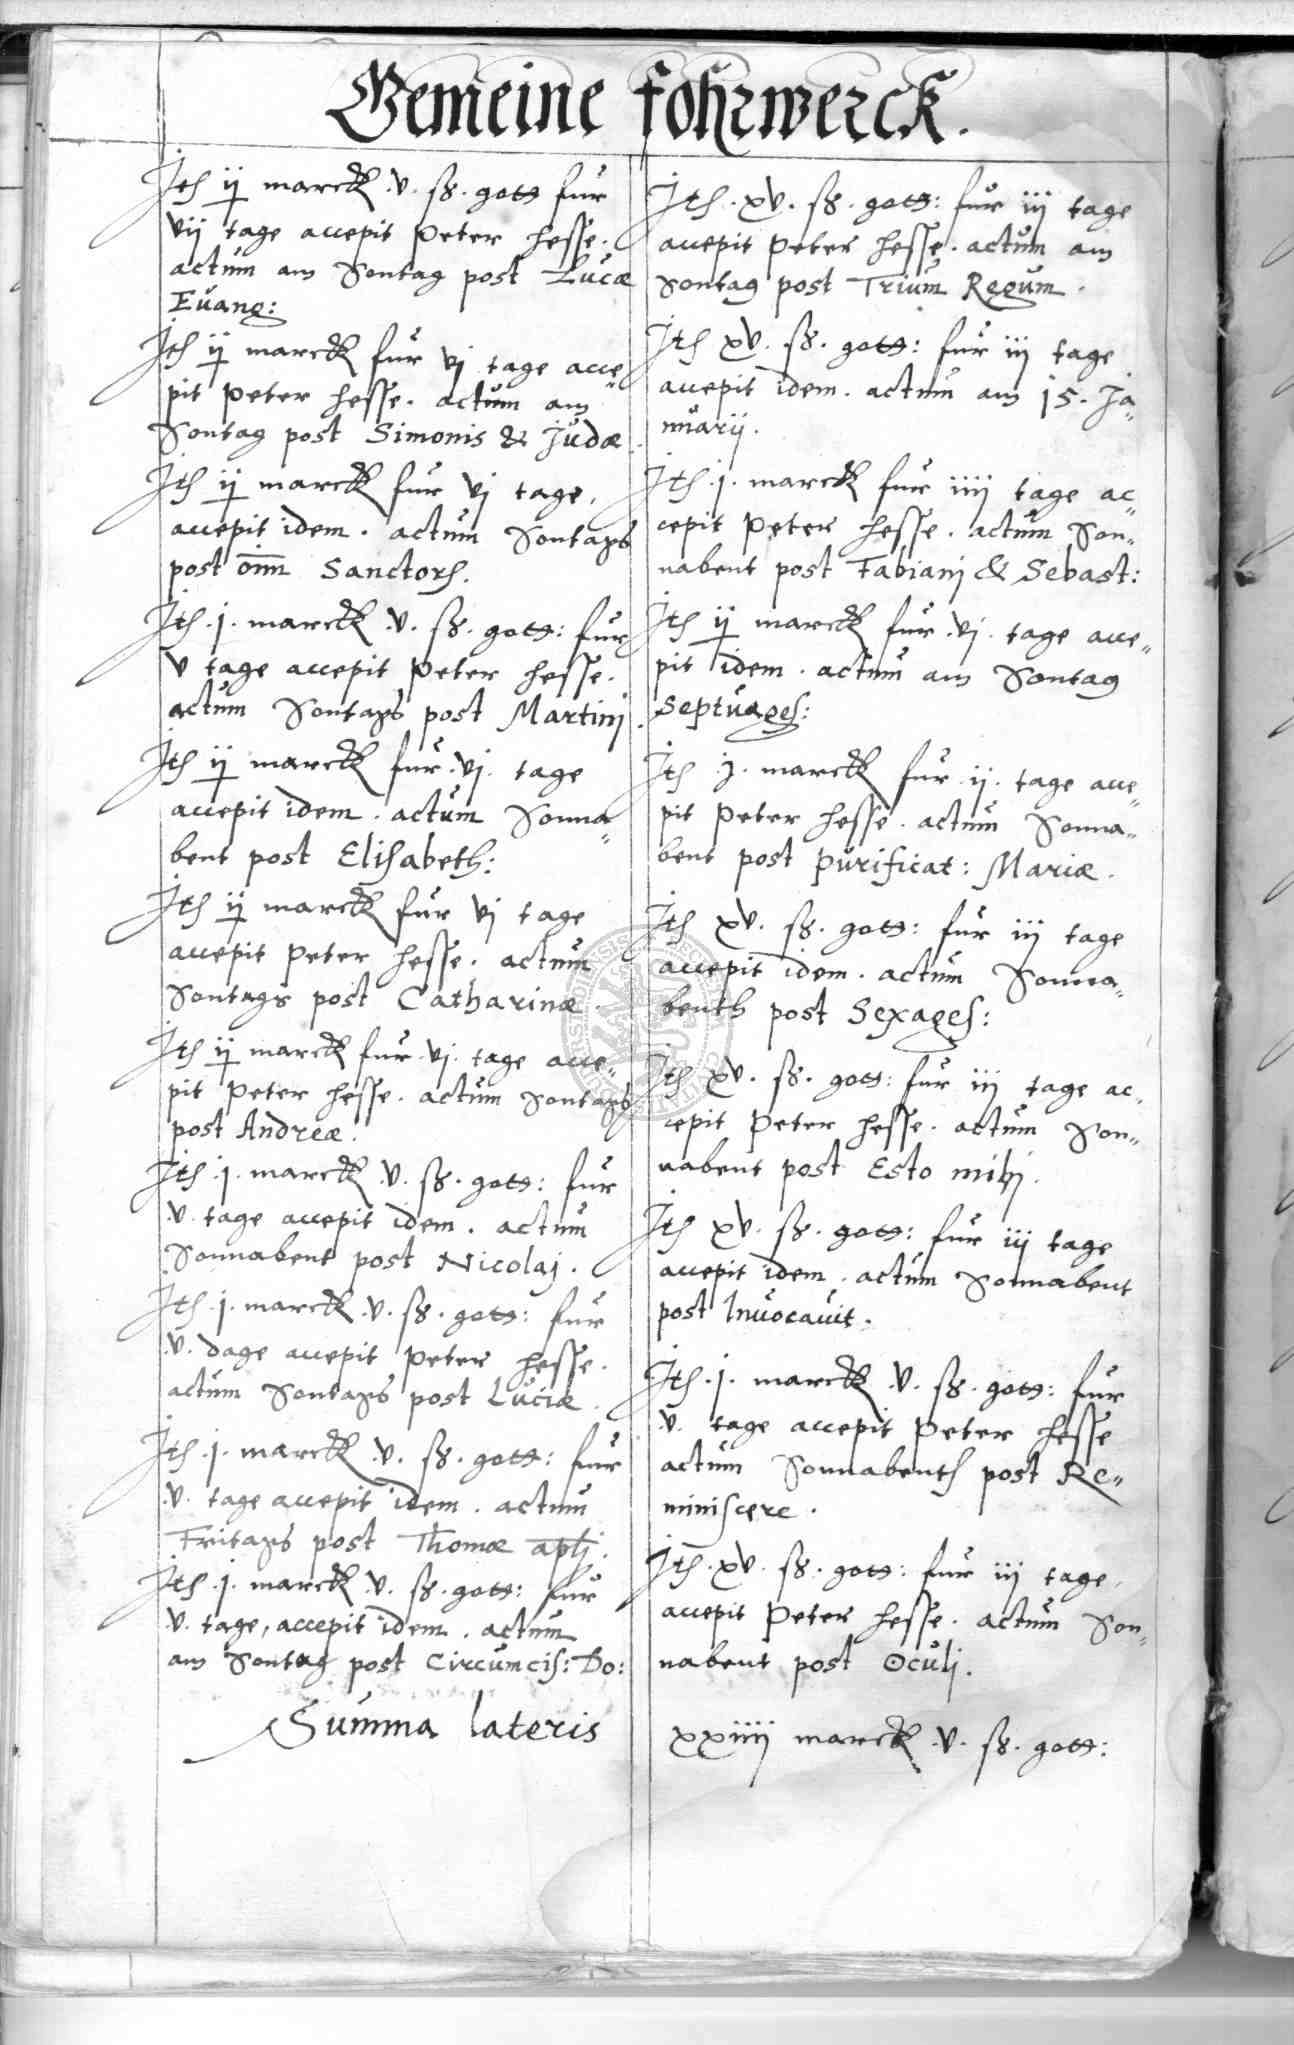 Gemeine fohrwerck.
Ite ij marck .v. sg. gorg fur
vij tage accepit Peter Hesse.
actum am Sontag post Lucæ
Euang:
Ite ij marck fur vj tage acce„
pit Peter Hesse. actum am
Sontag post Simonis & Judæ.
Ite ij marck fur vj tage,
accepit idem. actum Sontags
post om̄ Sanctor.
Ite .j. marck .v. sg. gorg: fur
v tage accepit Peter Hesse.
actum Sontags post Martinj.
Ite ij marck fur .vj. tage
accepit idem. actum Sonna„
bent post Elisabeth:
Ite ij marck fur vj tage
accepit Peter Hesse. actum
Sontags post Catharinæ.
Ite ij marck fur .vj. tage acce„
pit Peter Hesse. actum Sontags
post Andreæ.
Ite .j. marck .v. sg. gorg: fur
.v. tage accepit idem. actum
Sonnabent post Nicolaj.
Ite .j. marck .v. sg. gorg: fur
.v. dage accepit Peter Hesse.
actum Sontags post Luciæ.
Ite .j. marck .v. sg. gorg: fur
.v. tage accepit idem. actum
Fritags post Thomæ aplj.
Ite .j. marck .v. sg. gorg: fur
.v. tage, accepit idem. actum
am Sontag post Circumcis: Do:
Summa lateris
Ite .xv. sg. gorg: fur iij tage
accepit Peter Hesse. actum am
Sontag post Trium Regum.
Ite xv. sg. gorg: fur iij tage
accepit idem. actum am 15. Ja„
nuarij.
Ite .j. marck fur iiij tage ac„
cepit Peter Hesse. actum Son„
nabent post Fabianj & Sebast:
Ite ij marck fur .vj. tage acce„
pit idem. actum am Sontag
Septuages:
Ite .j. marck fur .ij. tage acce„
pit Peter Hesse. actum Sonna„
bent post purificat: Mariæ.
Ite xv. sg. gorg: fur iij tage
accepit idem. actum Sonna„
benth post Sexages:
Ite xv. sg. gorg: fur iij tage ac„
cepit Peter Hesse. actum Son„
nabent post Esto mihj.
Ite xv. sg. gorg: fur iij tage
accepit idem. actum Sonnabent
post Inuocauit.
Ite .j. marck .v. sg. gorg: fur
.v. tage accepit Peter Hesse
actum Sonnabents post Re„
miniscere.
Ite .xv. sg. gorg: fur iij tage,
accepit Peter Hesse. actum Son„
nabent post Oculj.
xxiiij marck .v. sg. gorg: